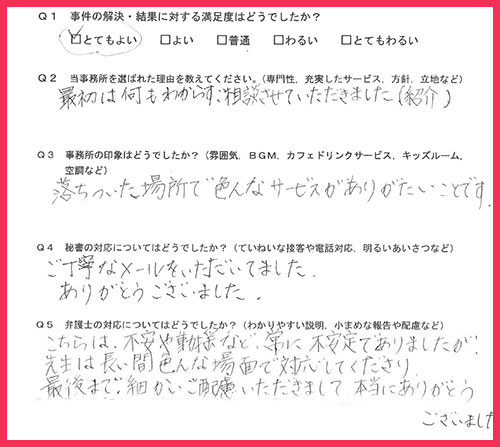 Q1 事件の解決・結果に対する満足度はどうでしたか？
☑とてもよい □よい □普通 □わるい □とてもわるい
Q2 当事務所を選ばれた理由を教えてください。（専門性，充実したサービス，方針，立地など）
最初は何もわからず、相談させていただきました（紹介）
Q3 事務所の印象はどうでしたか？（雰囲気，BGM，カフェドリンクサービス，キッズルーム，
空調など）
落ちついた場所で色んなサービスがありがたいことです。
Q4 秘書の対応についてはどうでしたか？（ていねいな接客や電話対応，明るいあいさつなど）
ご丁寧なメールをいただいてました。
ありがとうございました。
Q5 弁護士の対応についてはどうでしたか？（わかりやすい説明，小まめな報告や配慮など）
こちらは、不安や動揺など、常に不安定でありましたが、
先生は長い間色んな場面で対応してくださり、
最後まで、細かいご配慮いただきまして、本当にありがとう
ございました